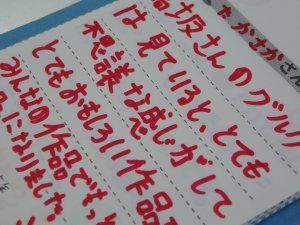 坂さんのグルグ
は見ていると、とても
不思議な感じがして
とてもおもしろい作品
みんなの作品でもっと
になりました。
かさかさん